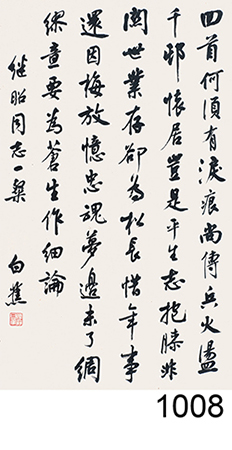 回首何須有淚痕尚傳兵火盪
千邨懷居豈是平生志抱膝非
關世業存卻為松長惜年事
還因梅放憶忠魂夢邊未了綢
繆意要為蒼生作細論
继昭同志一粲
白蕉
1008